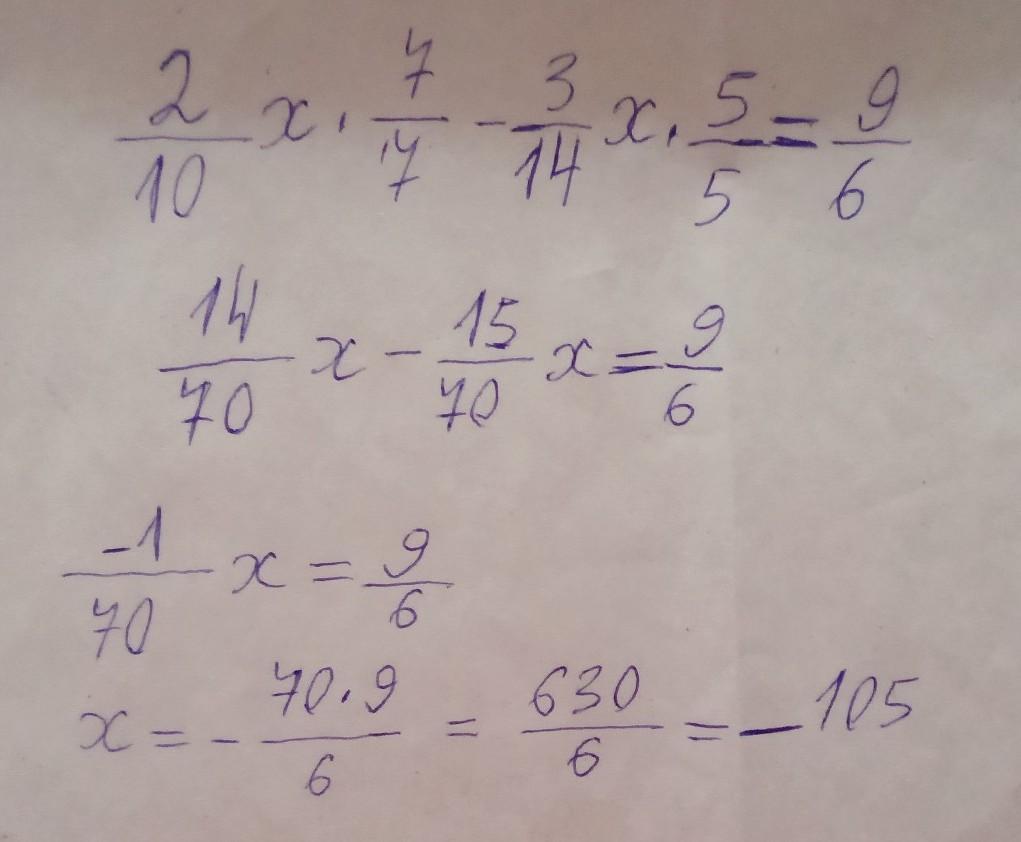 2/10 x · 7/7 - 3/14 x · 5/5 = 9/6
14/70 x - 15/70 x = 9/6
-1/70 x = 9/6
x = - 70·9/6 = 630/6 = - 105